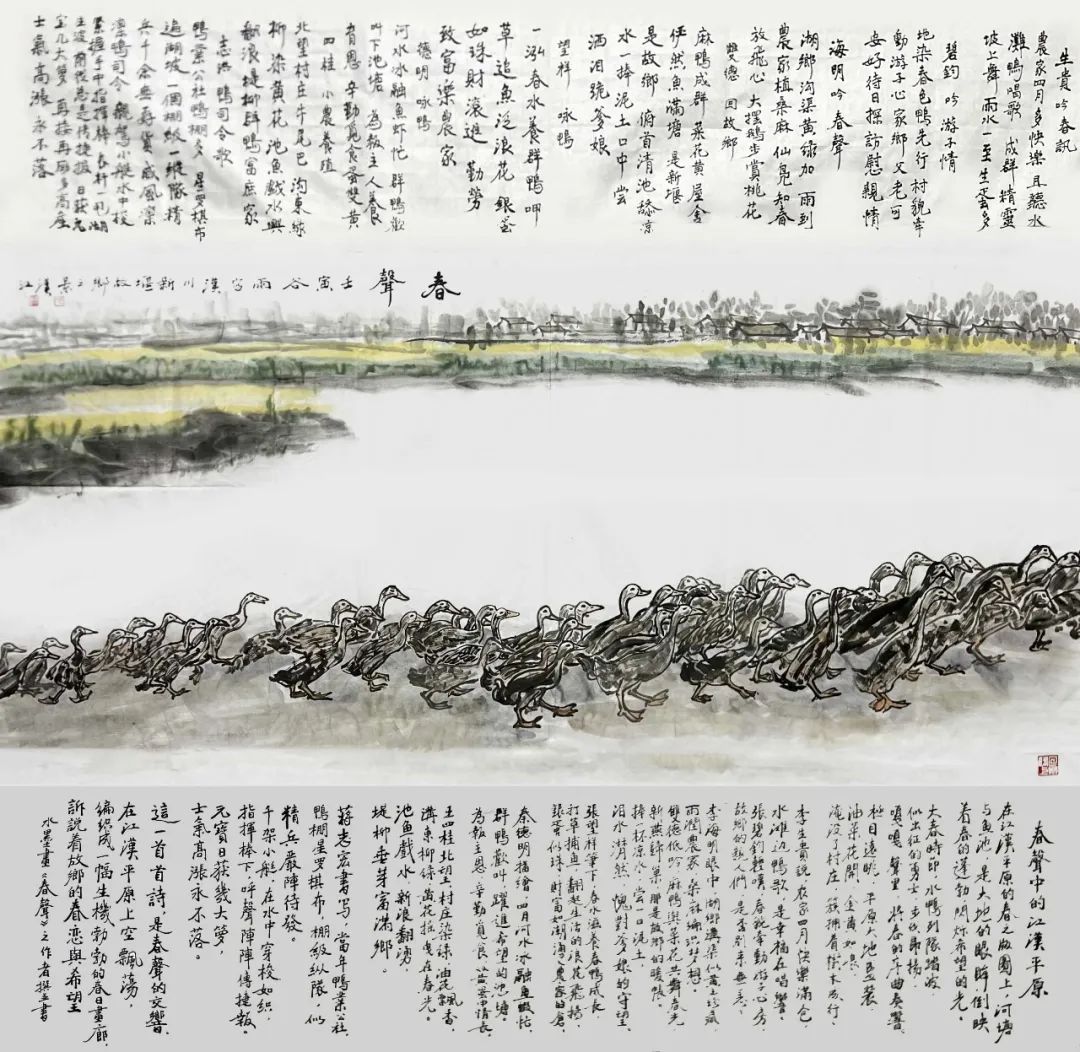 生貴吟春訊
農家四月多快樂且聽水
灘鴨唱歌成群精靈
坡上舞雨水一至生蛋多
碧鈞吟游子情
地染春色鴨先行村貌牽
動游子心家鄉父老可
安好待日探訪慰親情
海明吟春聲
湖鄉沟渠黃綠加雨到
農家植桑麻仙凫知春
放飛心大擺鵝步賞桃花
雙德回故鄉
麻鴨成群菜花黃屋舍
伾然魚滿塘是新堰
是故鄉俯首清池舔凉
水一捧泥土口中嘗
洒泪跪爹娘
望祥咏鴨
一泓春水養群鴨呷
草追魚泛浪花銀蛋
如珠財滾進勤勞
致富樂農家
德明咏鴨
河水冰融魚虾忙群鴨歡
叫下池塘為報主人養
育恩辛勤覓食蛋雙黃
四桂小農養殖
北望村庄牛尾巴沟東綠
柳染黃花池魚戲水興
翻浪堤柳群鴨富庶家
志洪鴨司令歌
鴨業公社鴨棚多星罗棋布
追湖坡一個棚級一縱隊精
兵千余無辱貨威風凛
凛鴨司令親駕小艇水中梭
緊握手中指揮棒長杆一孔湖
主波蛋圈夜忘芝傳捷报日获元
宝几大萝再接再厉多高産
士氣高漲永不落
春聲 壬寅谷雨写漢川新堰故鄉之景 漢江
春聲中的江漢平原
在江漢平原的春之版圖上，河塘
与魚池，是大地的眼眸倒映
着春的蓬勃閃烁希望的光。
大春時節，水鴨列隊踏波，
似出征的勇士，步伐昂揚，
嘎嘎聲里，將春的序曲奏響。
極目遠眺，平原大地尽装，
油菜花開，金黃如海，
淹没了村庄，簇擁着樹木成行，
李生貴説農家四月快樂滿倉，
水灘边鴨歌，是幸福在唱響。
張碧鈞輕嘆，春貌牽動游子心房
故鄉的熱人們，是否别来無恙，
李海明眼中，湖鄉溝渠似黃珍藏
雨潤農家，桑麻編織梦想，
雙德低吟，麻鴨與菜花共舞春光
新燕歸巢，那是故鄉的暖帳，
捧杯凉水，嘗一口泥土，
泪水潸然，愧對爹娘的守望。
張望祥筆下，春水滋養春鴨成長
打草捕魚，翻起生活的浪花飛揚，
銀蛋似珠，財富如湖涌，農家的倉。
秦德明描繪，四月河水冰融魚蝦忙
群鴨歡叫，躍進希望的池塘，
為報主恩，辛勤覓食，蛋黃蛋中情長，
王四桂北望，村庄染綠，油花飄香，
溝東柳綠，黃花摇曳在春光。
池魚戲水，新浪翻湧，
堤柳垂芽富滿鄉。
蒋志宏書写，當年鴨業公社，
鴨棚星罗棋布，棚級纵隊，似
精兵嚴陣待發。
千架小艇，在水中穿梭如織，
指揮棒下，呼聲陣陣傳捷報。
元寶日获幾大箩，
士氣高漲永不落。
這一首首詩，是春聲的交響，
在江漢平原上空飄蕩，
編織成一幅生機勃勃的春日畫廊，
訴說着故鄉的春戀與希望
水墨畫《春聲》之作者撰並書